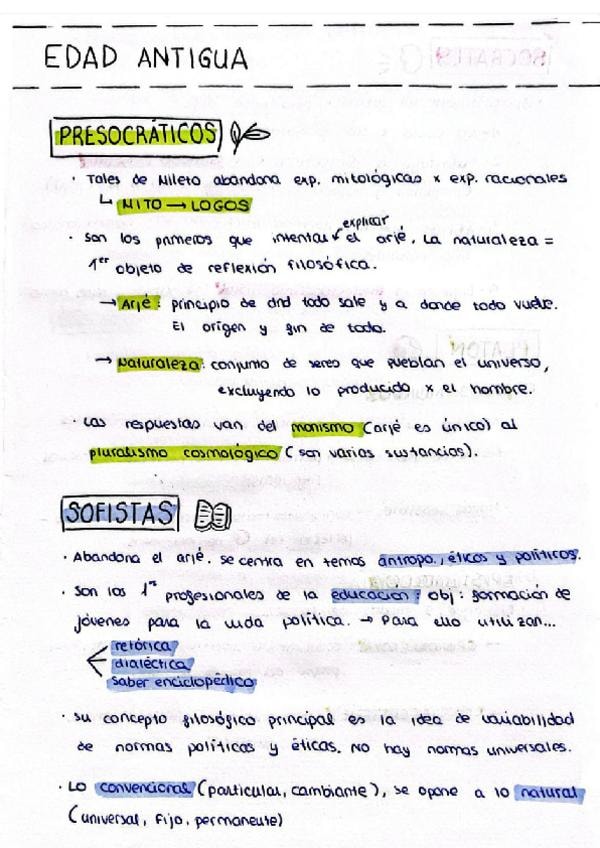 EDAD ANTIGUA
PRESOCRÁTICOS
· Tales de Mileto abandona exp. mitológicas x exp. racionales
↳ MITO → LOGOS
explicar
· Son los primeros que intentan el arjé. La naturaleza =
1er objeto de reflexión filosófica.
→ Arjé: principio de dnd todo sale y a donde todo vuelve.
El origen y fin de todo.
→ Naturaleza: conjunto de seres que pueblan el universo,
excluyendo lo producido x el hombre.
· Las respuestas van del monismo (arjé es único) al
pluralismo cosmológico (son varias sustancias).
SOFISTAS
· Abandona el arjé. se centra en temas antropo., éticos y políticos.
· Son los 1os profesionales de la educación; obj: formación de
jóvenes para la vida política. → Para ello utilizan...
retórica
dialéctica
saber enciclopédico
· Su concepto filosófico principal es la idea de variabilidad
de normas políticas y éticas. No hay normas universales.
· Lo convencional (particular, cambiante), se opone a lo natural
(universal, fijo, permanente)